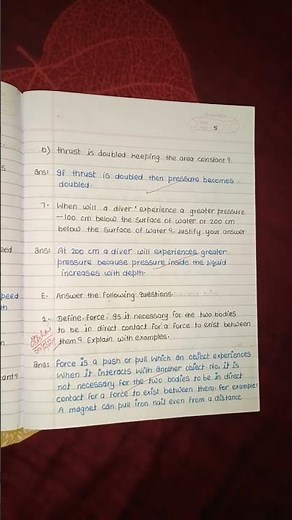 5
b) thrust is doubled keeping the area constant?
Ans: If thrust is doubled then pressure becomes
doubled.
7. When will a diver experience a greater pressure
-100 cm below the surface of water or 200 cm
below the surface of water? Justify your answer
Ans: At 200 cm a diver will experiences greater
pressure because pressure inside the liquid
increases with depth.
E. Answer the following questions
1. Define force. Is it necessary for the two bodies
to be in direct contact for a force to exist between
them? Explain with examples.
Ans: Force is a push or pull which an object experiences
When it interacts with another object. No, it is
not necessary for the two bodies to be in direct
contact for a force to exist between them. For example:
A magnet can pull iron nail even from a distance